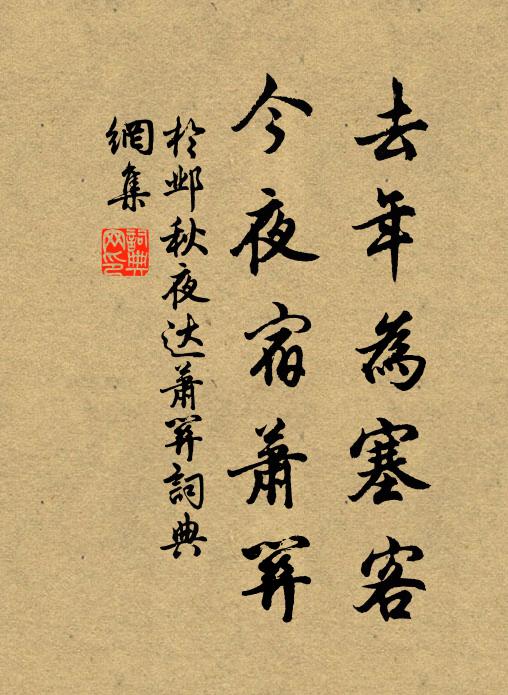 去年為塞客
今夜宿蕭關
於邺秋夜达蕭關詞典
網集
詞典
网印